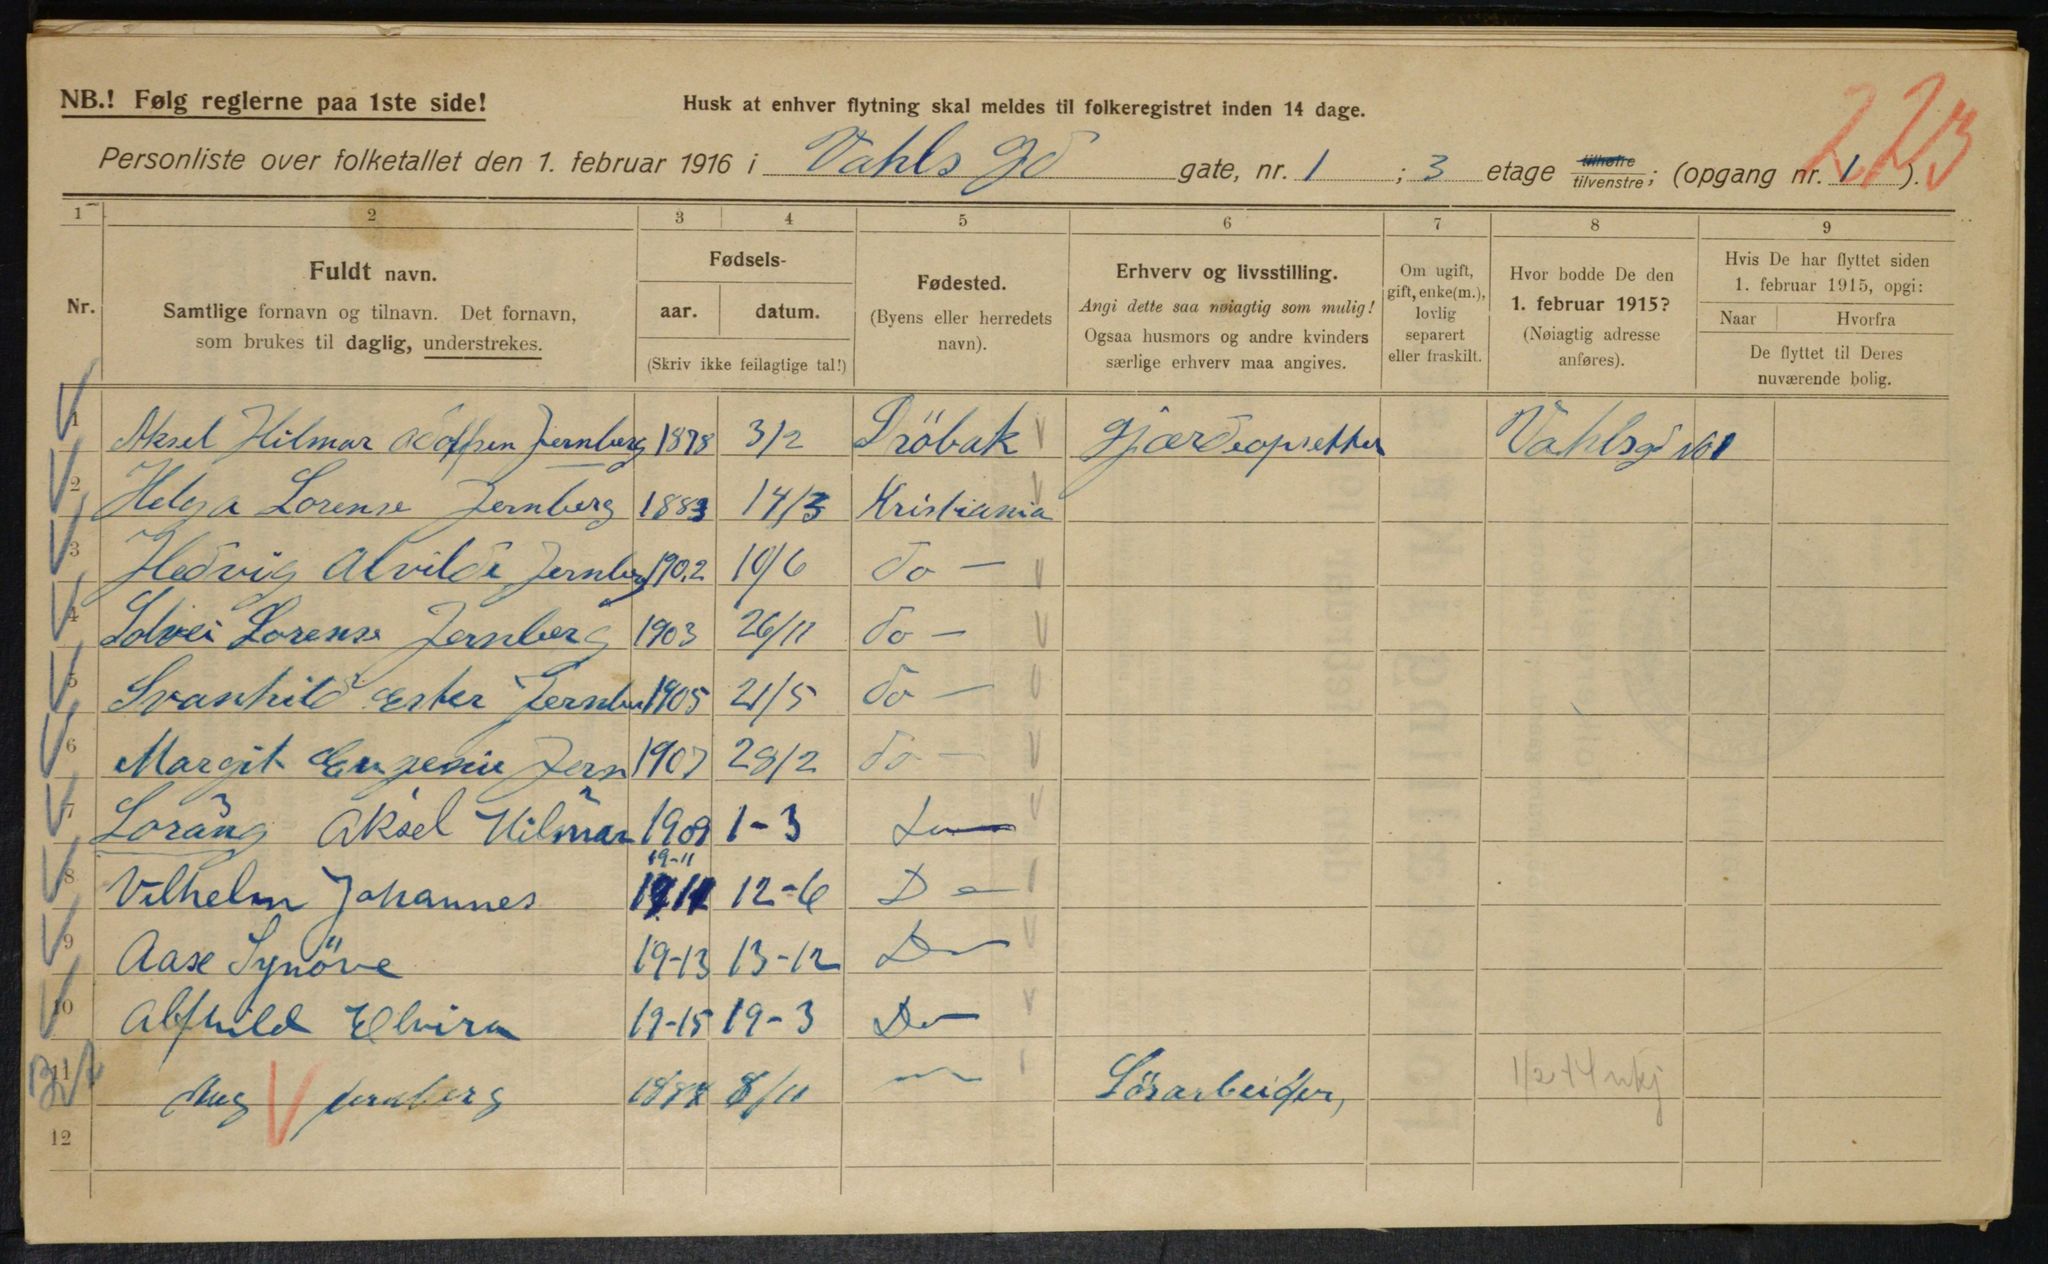 NB.! Følg reglerne paa 1ste side!
Husk at enhver flytning skal meldes til folkeregistret inden 14 dage.
223
Personliste over folketallet den 1. februar 1916 i Vahls gd gate, nr. 1 ; 3 etage tilhøire tilvenstre; (opgang nr. 1 ).
1 2 3 4 5 6 7 8 9
Nr.
Fuldt navn.
Samtlige fornavn og tilnavn. Det fornavn,
som brukes til daglig, understrekes.
Fødsels-
aar. datum.
(Skriv ikke feilagtige tal!)
Fødested.
(Byens eller herredets
navn).
Erhverv og livsstilling.
Angi dette saa nøiagtig som mulig!
Ogsaa husmors og andre kvinders
særlige erhverv maa angives.
Om ugift,
gift, enke(m.),
lovlig
separert
eller fraskilt.
Hvor bodde De den
1. februar 1915?
(Nøiagtig adresse
anføres).
Hvis De har flyttet siden
1. februar 1915, opgi:
Naar Hvorfra
De flyttet til Deres
nuværende bolig.
1 Aksel Hilmar Adolfsen Jernberg 1878 3/2 Dröbak Gjærdeopsetter Vahlsgd No 1
2 Helga Lorense Jernberg 1883 14/3 Kristiania
3 Hedvig Alvilde Jernberg 1902 10/6 do —
4 Solvei Lorense Jernberg 1903 26/11 do —
5 Svanhild Ester Jernber 1905 21/5 do —
6 Margit Eugenie Jern 1907 28/2 do —
7 Lorang Aksel Hilmar 1909 1-3 Do
19-11
8 Vilhelm Johannes 12-6 Do
9 Aase Synöve 19-13 13-12 Do
10 Alfhild Elvira 19-15 19-3 Do
11 Aug Jernberg 8/11 — Lösarbeider,
12